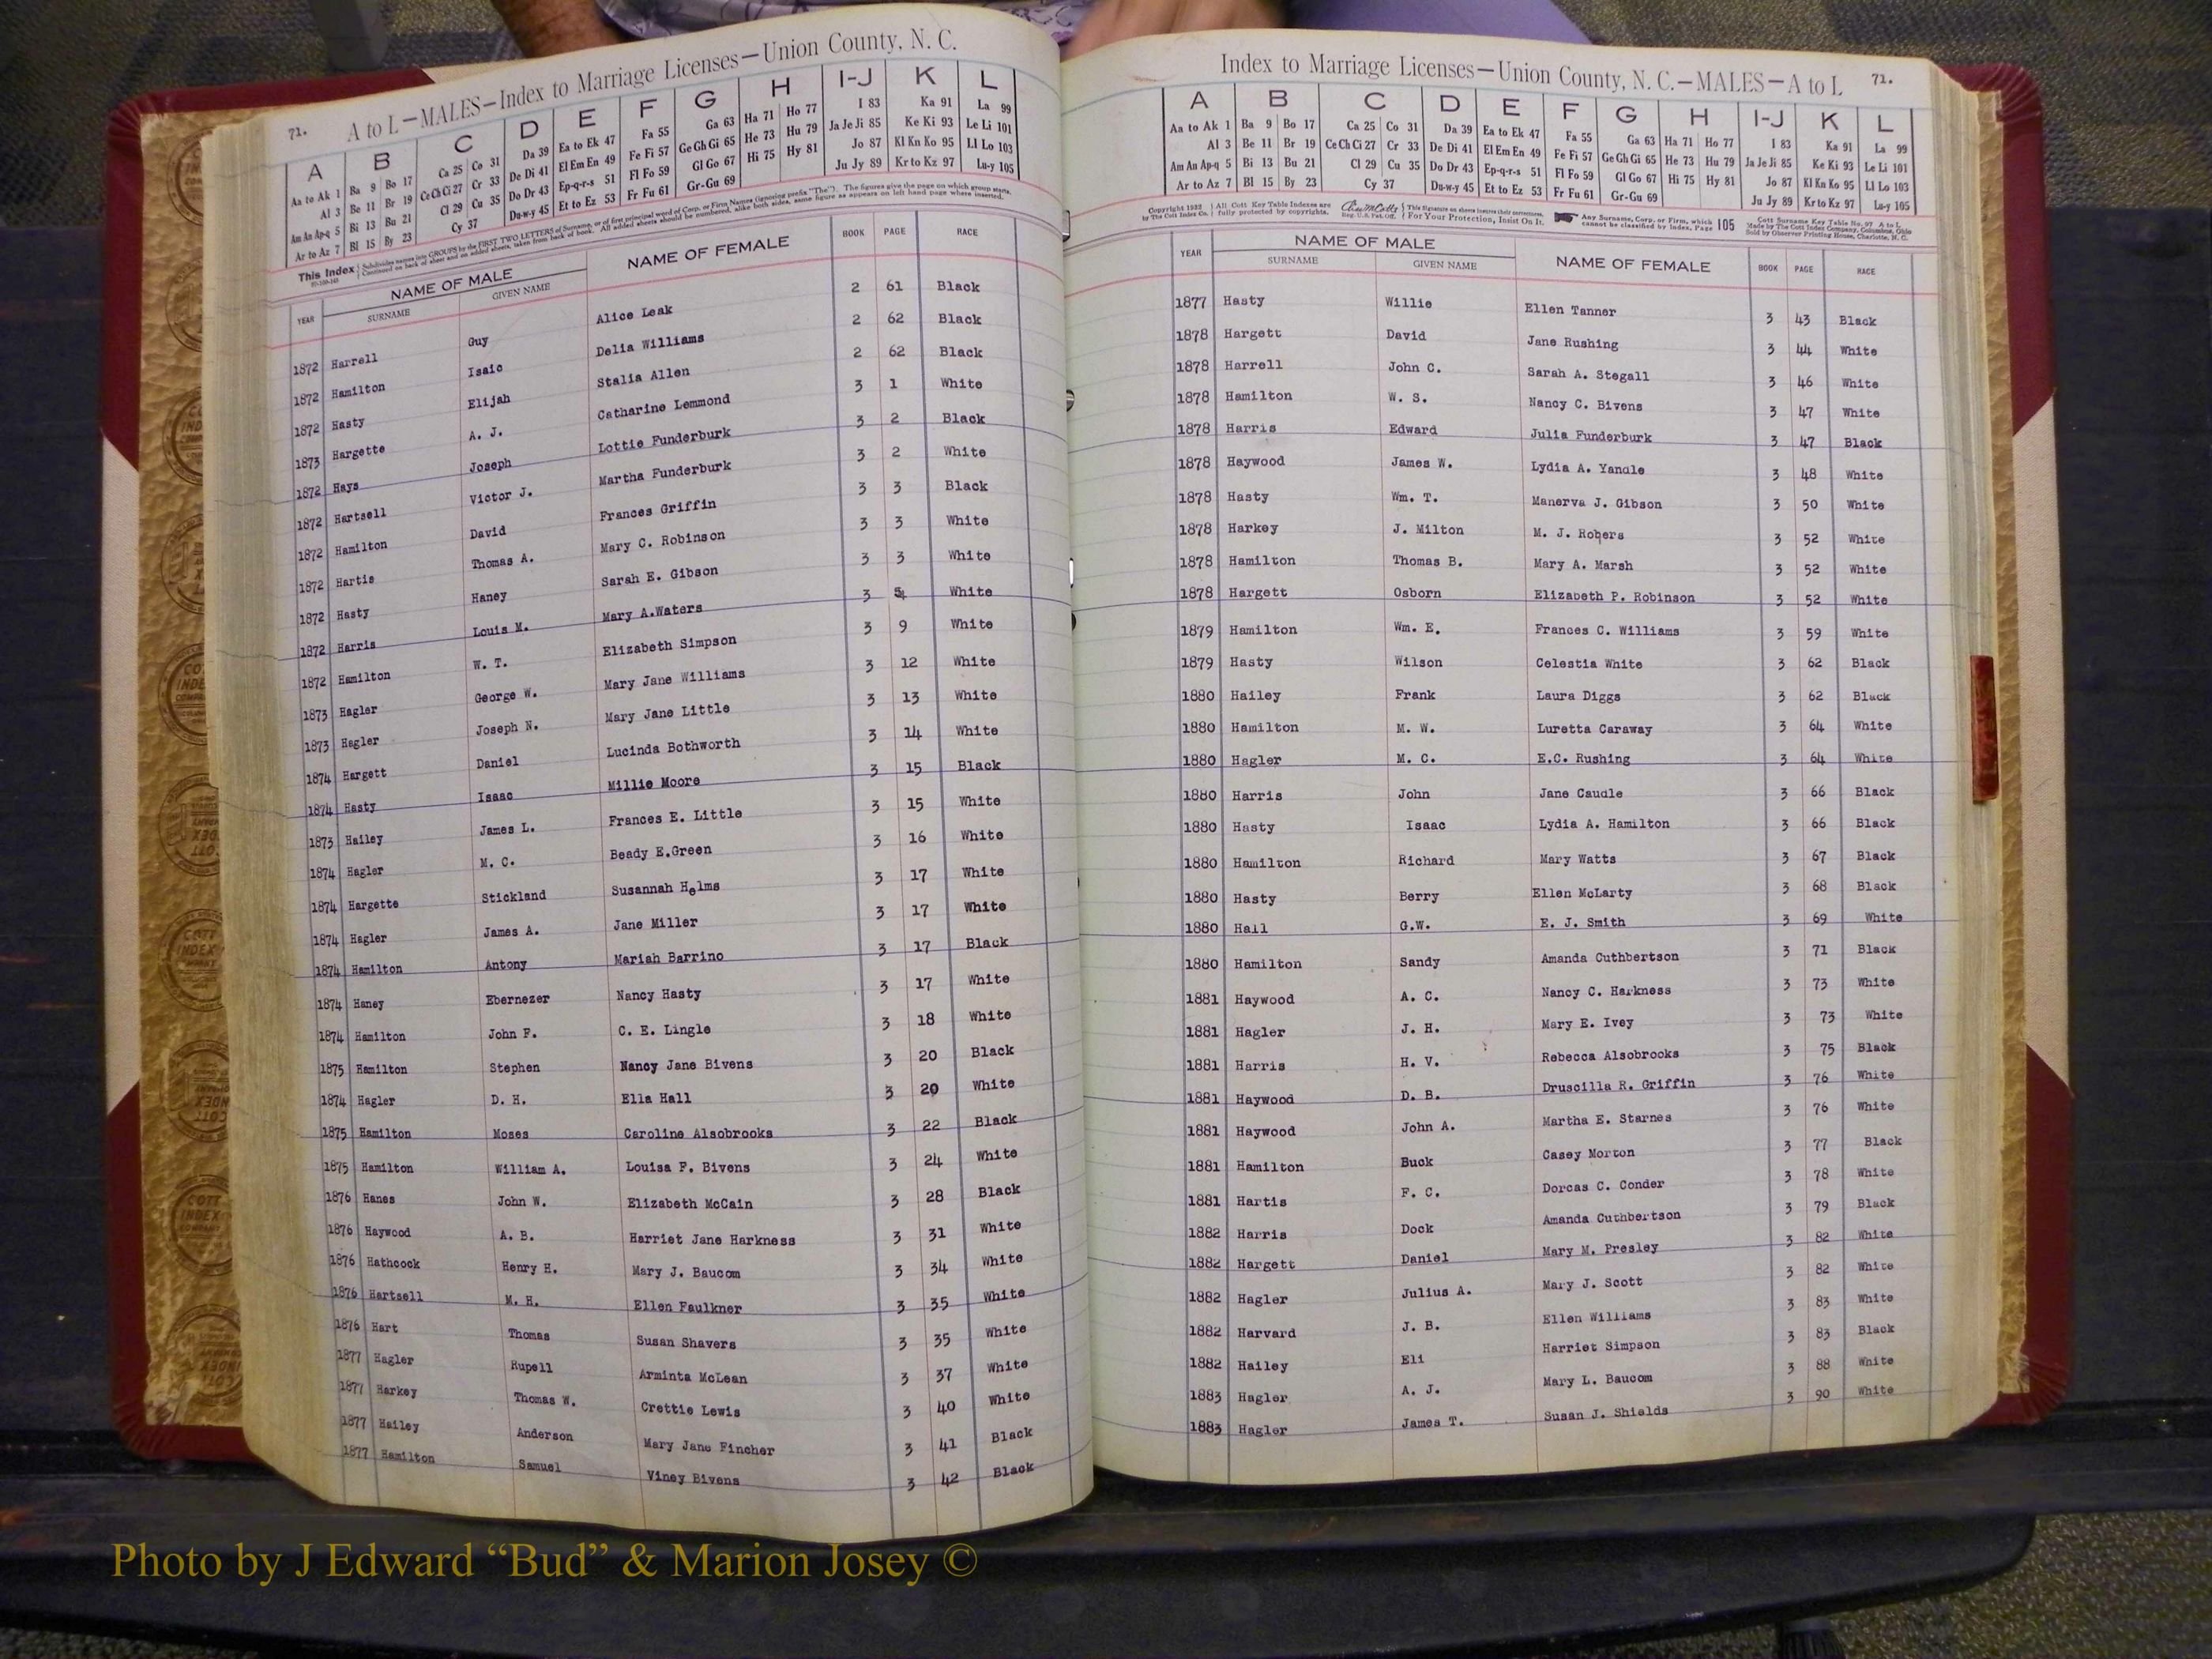 71. A to L—MALES—Index to Marriage Licenses—Union County, N. C.
A B C D E F G H I-J K L
Aa to Ak 1 Ba 9 Bo 17 Ca 25 Co 31 Da 39 Ea to Ek 47 Fa 55 Ga 63 Ha 71 Ho 77 I 83 Ka 91 La 99
Al 3 Be 11 Br 19 Ce Ch Ci 27 Cr 33 De Di 41 El Em En 49 Fe Fi 57 Ge Gh Gi 65 He 73 Hu 79 Ja Je Ji 85 Ke Ki 93 Le Li 101
Am An Ap-q 5 Bi 13 Bu 21 Cl 29 Cu 35 Do Dr 43 Ep-q-r-s 51 Fl Fo 59 Gl Go 67 Hi 75 Hy 81 Jo 87 Kl Kn Ko 95 Ll Lo 103
Ar to Az 7 Bl 15 By 23 Cy 37 Du-w-y 45 Et to Ez 53 Fr Fu 61 Gr-Gu 69 Ju Jy 89 Kr to Kz 97 Lu-y 105
This Index Subdivides names into GROUPS by the FIRST TWO LETTERS of Surname, or of first principal word of Corp. or Firm Names (ignoring prefix "The"). The figures give the page on which group starts.
Continued on back of sheet and on added sheets, taken from back of book. All added sheets should be numbered, alike both sides, same figure as appears on left hand page where inserted.
YEAR NAME OF MALE SURNAME GIVEN NAME NAME OF FEMALE BOOK PAGE RACE
1872 Harrell Guy Alice Leak 2 61 Black
1872 Hamilton Isaic Delia Williams 2 62 Black
1872 Hasty Elijah Stalia Allen 2 62 Black
1873 Hargette A. J. Catharine Lemmond 3 1 White
1872 Hays Joseph Lottie Funderburk 3 2 Black
1872 Hartsell Victor J. Martha Funderburk 3 2 White
1872 Hamilton David Frances Griffin 3 3 Black
1872 Hartis Thomas A. Mary C. Robinson 3 3 White
1872 Hasty Haney Sarah E. Gibson 3 3 White
1872 Harris Louis M. Mary A.Waters 3 White
1872 Hamilton W. T. Elizabeth Simpson 3 9 White
1873 Hagler George W. Mary Jane Williams 3 12 White
1873 Hagler Joseph N. Mary Jane Little 3 13 White
1874 Hargett Daniel Lucinda Bothworth 3 14 White
1874 Hasty Isaac Millie Moore 3 15 Black
1873 Hailey James L. Frances E. Little 3 15 White
1874 Hagler M. C. Beady E.Green 3 16 White
1874 Hargette Stickland Susannah Helms 3 17 White
1874 Hagler James A. Jane Miller 3 17 White
1874 Hamilton Antony Mariah Barrino 3 17 Black
1874 Haney Ebernezer Nancy Hasty 3 17 White
1874 Hamilton John F. C. E. Lingle 3 18 White
1875 Hamilton Stephen Nancy Jane Bivens 3 20 Black
1874 Hagler D. H. Ella Hall 3 20 White
1875 Hamilton Moses Caroline Alsobrooks 3 22 Black
1875 Hamilton William A. Louisa F. Bivens 3 24 White
1876 Hanes John W. Elizabeth McCain 3 28 Black
1876 Haywood A. B. Harriet Jane Harkness 3 31 White
1876 Hathcock Henry H. Mary J. Baucom 3 34 White
1876 Hartsell M. H. Ellen Faulkner 3 35 White
1876 Hart Thomas Susan Shavers 3 35 White
1877 Hagler Rupell Arminta McLean 3 37 White
1877 Harkey Thomas W. Crettie Lewis 3 40 White
1877 Hailey Anderson Mary Jane Fincher 3 41 Black
1877 Hamilton Samuel Viney Bivens 3 42 Black
Index to Marriage Licenses—Union County, N. C.—MALES—A to L 71.
A B C D E F G H I-J K L
Aa to Ak 1 Ba 9 Bo 17 Ca 25 Co 31 Da 39 Ea to Ek 47 Fa 55 Ga 63 Ha 71 Ho 77 I 83 Ka 91 La 99
Al 3 Be 11 Br 19 Ce Ch Ci 27 Cr 33 De Di 41 El Em En 49 Fe Fi 57 Ge Gh Gi 65 He 73 Hu 79 Ja Je Ji 85 Ke Ki 93 Le Li 101
Am An Ap-q 5 Bi 13 Bu 21 Cl 29 Cu 35 Do Dr 43 Ep-q-r-s 51 Fl Fo 59 Gl Go 67 Hi 75 Hy 81 Jo 87 Kl Kn Ko 95 Ll Lo 103
Ar to Az 7 Bl 15 By 23 Cy 37 Du-w-y 45 Et to Ez 53 Fr Fu 61 Gr-Gu 69 Ju Jy 89 Kr to Kz 97 Lu-y 105
Copyright 1932 All Cott Key Table Indexes are This signature on sheets insures their correctness. Any Surname, Corp. or Firm, which 105 Cott Surname Key Table No. 97 A to L
by The Cott Index Co. fully protected by copyrights. Reg. U.S. Pat. Off. For Your Protection, Insist On It. cannot be classified by Index, Page Made by The Cott Index Company, Columbus, Ohio
Sold by Observer Printing House, Charlotte, N. C.
YEAR NAME OF MALE SURNAME GIVEN NAME NAME OF FEMALE BOOK PAGE RACE
1877 Hasty Willie Ellen Tanner 3 43 Black
1878 Hargett David Jane Rushing 3 44 White
1878 Harrell John C. Sarah A. Stegall 3 46 White
1878 Hamilton W. S. Nancy C. Bivens 3 47 White
1878 Harris Edward Julia Funderburk 3 47 Black
1878 Haywood James W. Lydia A. Yandle 3 48 White
1878 Hasty Wm. T. Manerva J. Gibson 3 50 White
1878 Harkey J. Milton M. J. Rogers 3 52 White
1878 Hamilton Thomas B. Mary A. Marsh 3 52 White
1878 Hargett Osborn Elizabeth P. Robinson 3 52 White
1879 Hamilton Wm. E. Frances C. Williams 3 59 White
1879 Hasty Wilson Celestia White 3 62 Black
1880 Hailey Frank Laura Diggs 3 62 Black
1880 Hamilton M. W. Luretta Caraway 3 64 White
1880 Hagler M. C. E.C. Rushing 3 64 White
1880 Harris John Jane Caudle 3 66 Black
1880 Hasty Isaac Lydia A. Hamilton 3 66 Black
1880 Hamilton Richard Mary Watts 3 67 Black
1880 Hasty Berry Ellen McLarty 3 68 Black
1880 Hall G.W. E. J. Smith 3 69 White
1880 Hamilton Sandy Amanda Cuthbertson 3 71 Black
1881 Haywood A. C. Nancy C. Harkness 3 73 White
1881 Hagler J. H. Mary E. Ivey 3 73 White
1881 Harris H. V. Rebecca Alsobrooks 3 75 Black
1881 Haywood D. B. Druscilla R. Griffin 3 76 White
1881 Haywood John A. Martha E. Starnes 3 76 White
1881 Hamilton Buck Casey Morton 3 77 Black
1881 Hartis F. C. Dorcas C. Conder 3 78 White
1882 Harris Dock Amanda Cuthbertson 3 79 Black
1882 Hargett Daniel Mary M. Presley 3 82 White
1882 Hagler Julius A. Mary J. Scott 3 82 White
1882 Harvard J. B. Ellen Williams 3 83 White
1882 Hailey Eli Harriet Simpson 3 83 Black
1883 Hagler A. J. Mary L. Baucom 3 88 White
1883 Hagler James T. Susan J. Shields 3 90 White
Photo by J Edward “Bud” & Marion Josey ©